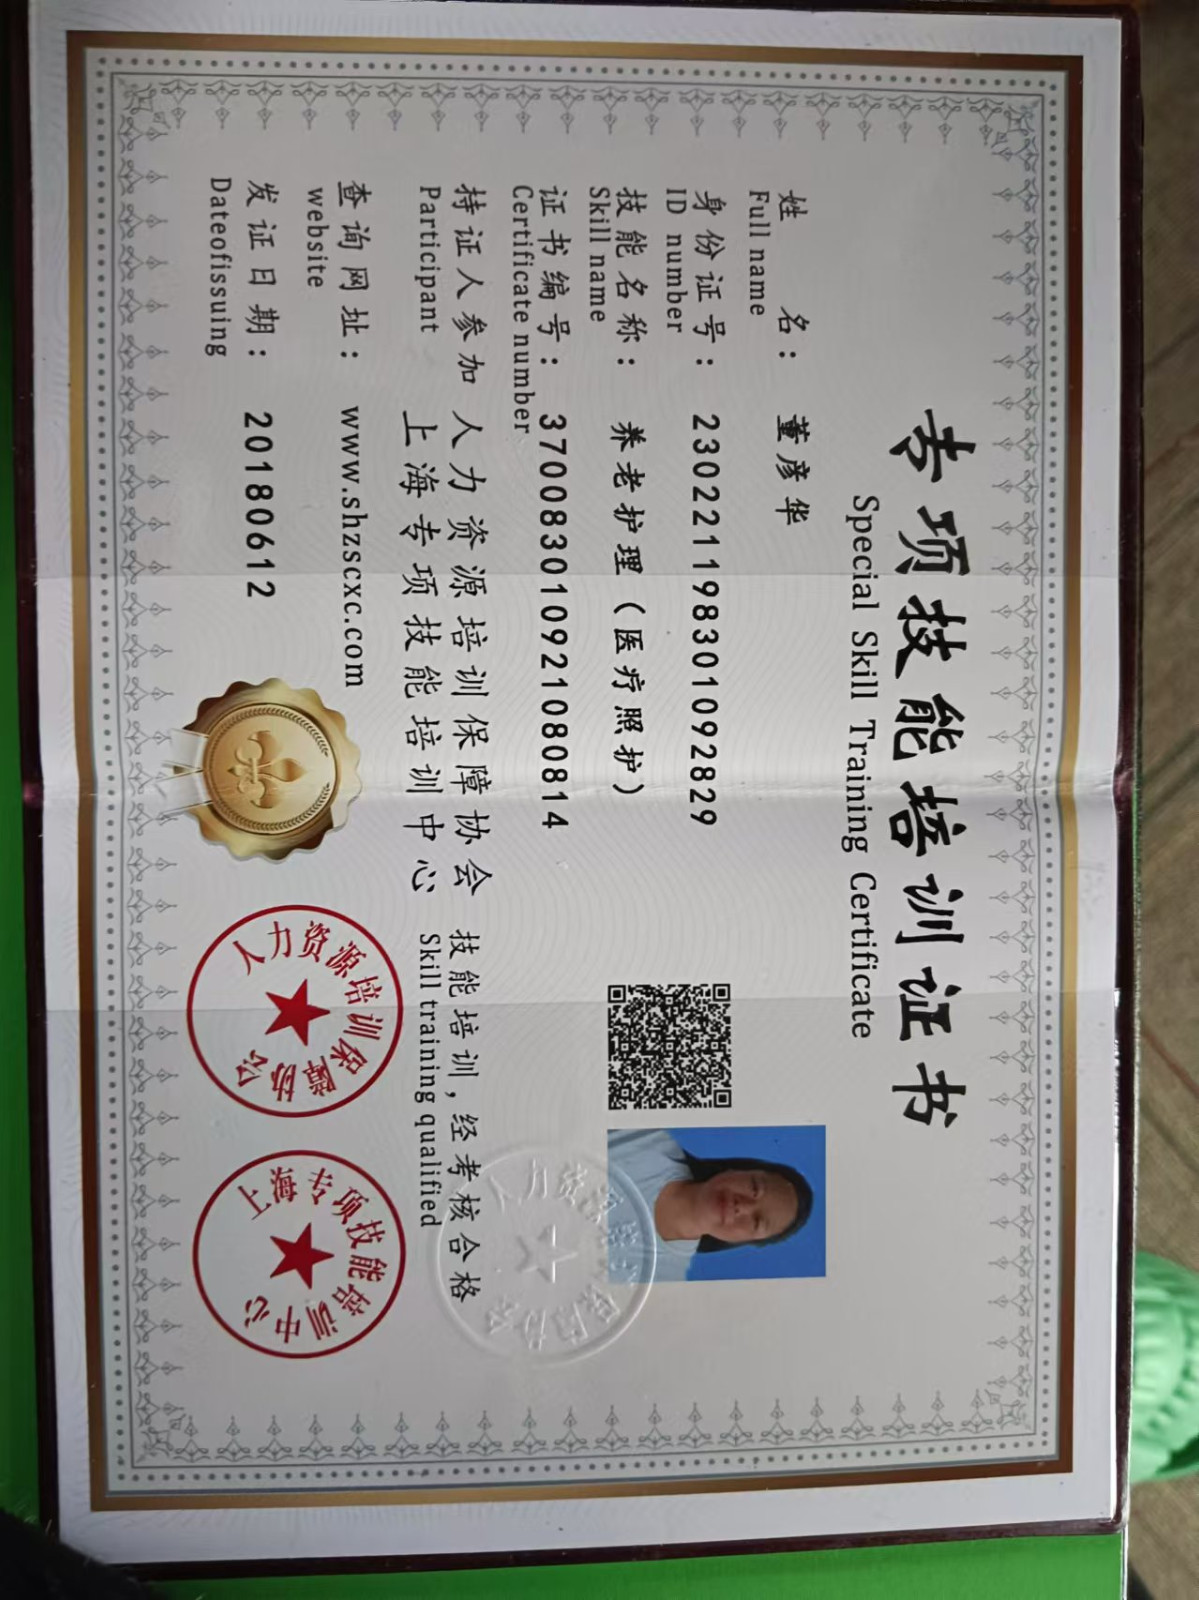 专项技能培训证书
Special Skill Training Certificate
姓 名： 董彦华
Full name
身份证号： 230221198301092829
ID number
技能名称： 养老护理（医疗照护）
Skill name
证书编号： 370083010921080814
Certificate number
持证人参加 人力资源培训保障协会 技能培训，经考核合格
Participant 上海专项技能培训中心 Skill training qualified
查询网址： www.shzscxc.com
website
发证日期： 20180612
Dateofissuing
人力资源培训保障协会
上海专项技能培训中心